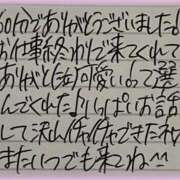 60分でありがとうございました!
お仕事終わりで来てくれて
ありがと(泣)可愛いって
んでくれた♪いっぱいお話
して沢山イチャイチャできたね
またいつでも来てね^^